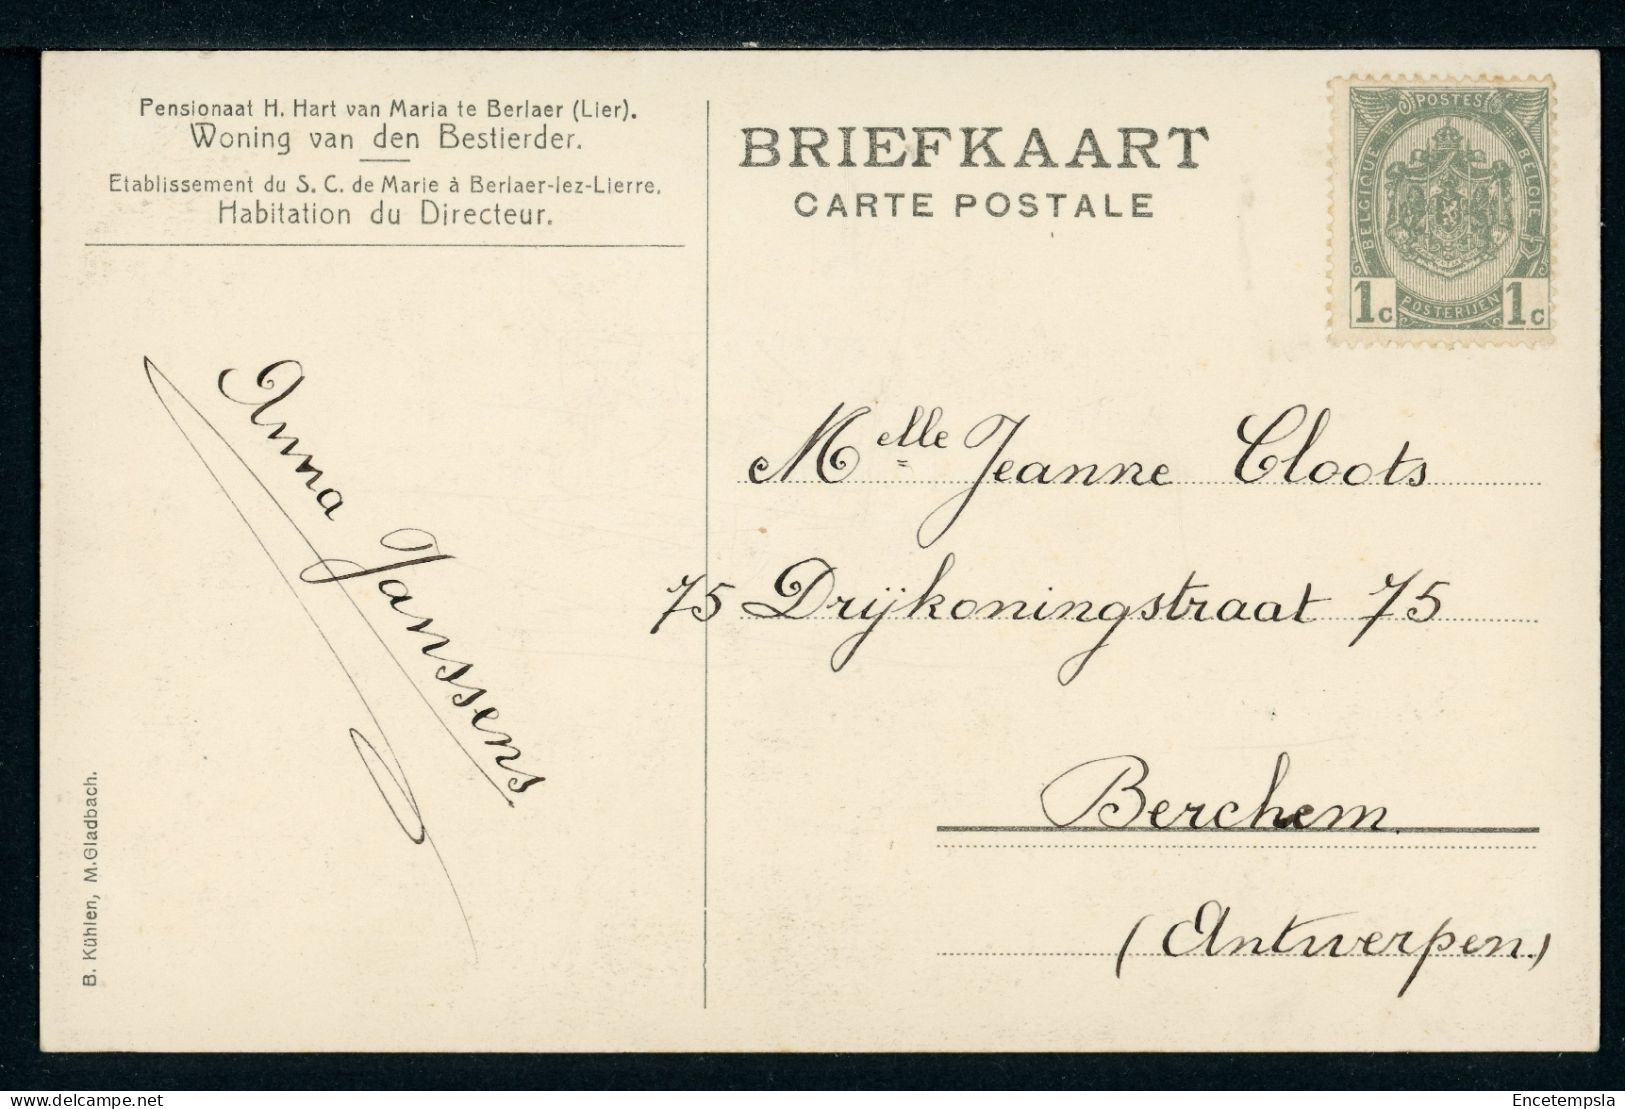 Pensionaat H. Hart van Maria te Berlaer (Lier).
Woning van den Bestierder.
Etablissement du S. C. de Marie à Berlaer-lez-Lierre.
Habitation du Directeur.
BRIEFKAART
CARTE POSTALE
POSTES
BELGIQUE
BELGIË
1c POSTERIJEN 1c
Anna Janssens
Melle Jeanne Cloots
75 Drijkoningstraat 75
Berchem.
(Antwerpen.)
B. Kühlen, M.Gladbach.
delcampe.net
Encetempsla